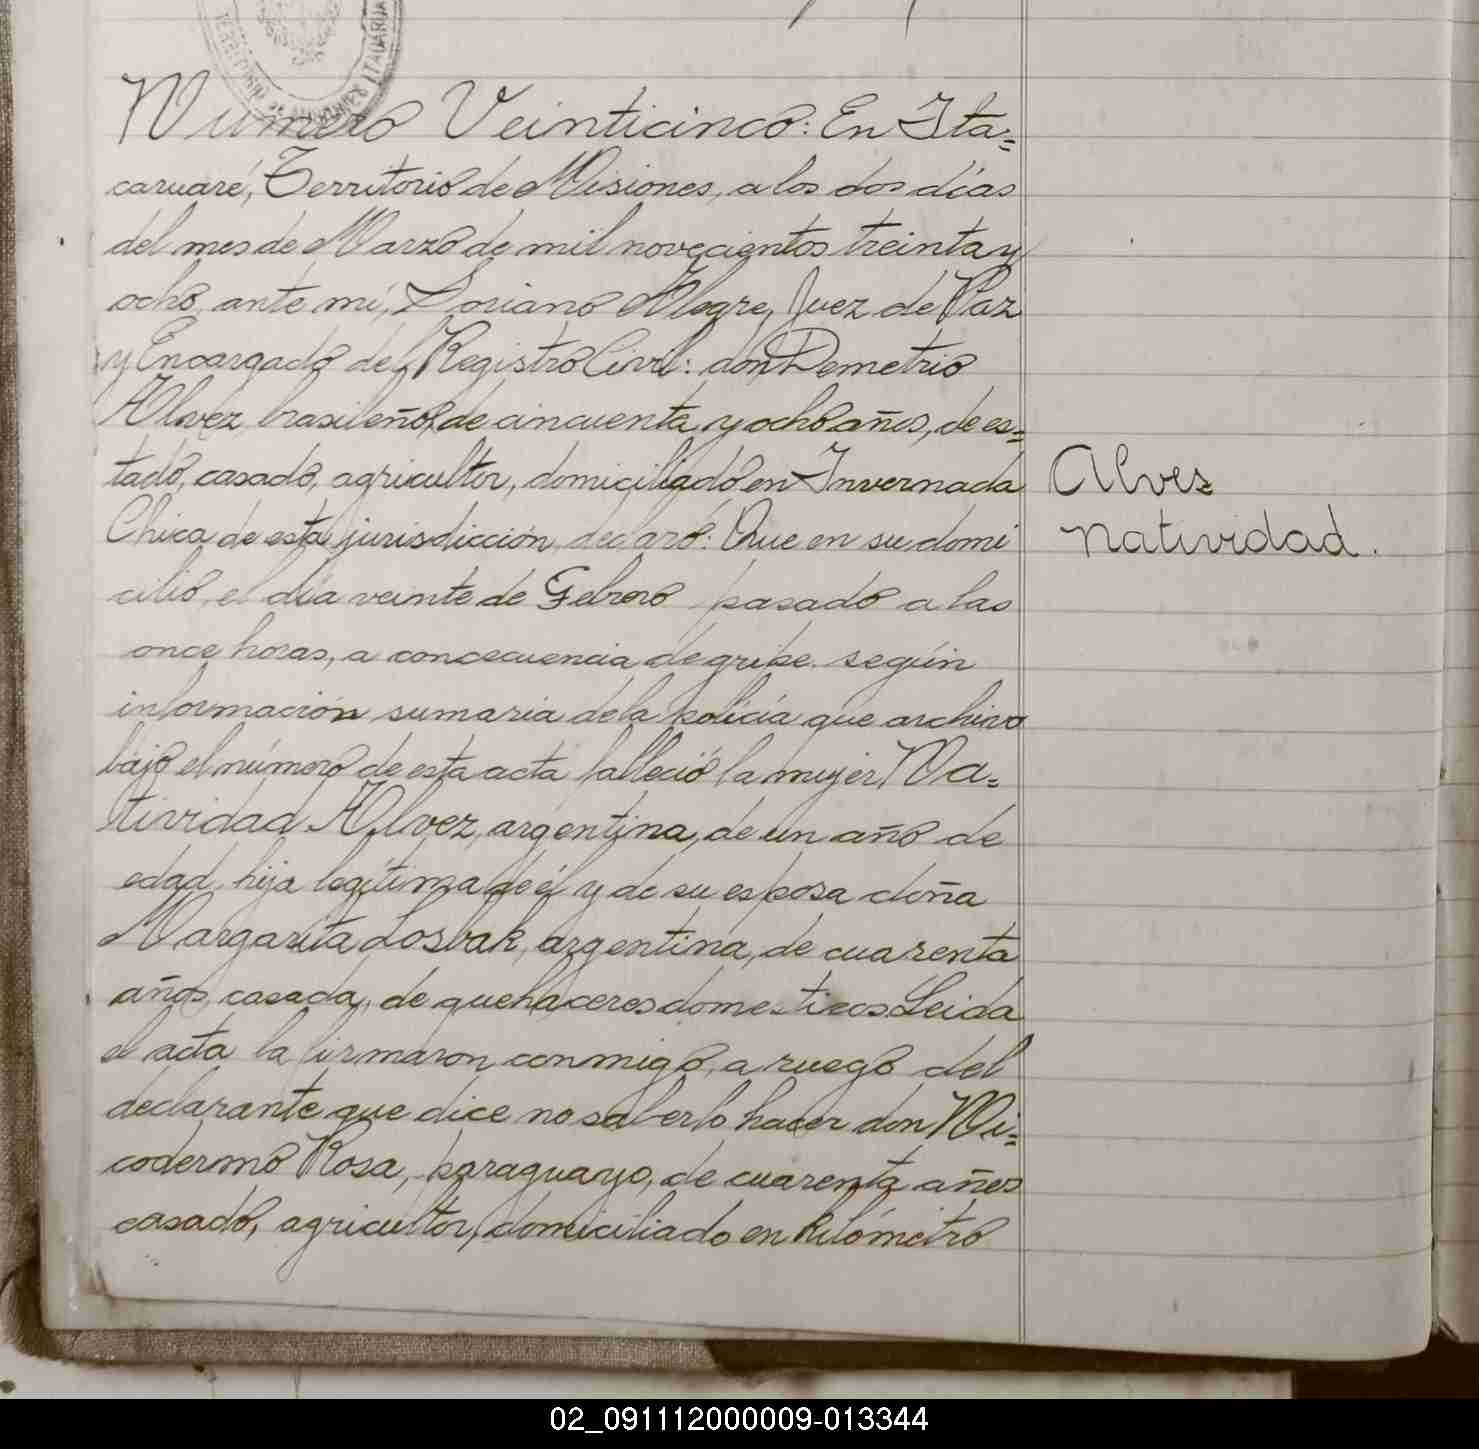 Numero Veinticinco: En Ita=
caruaré, Territorio de Misiones, a los dos días
del mes de Marzo de mil novecientos treinta y
ocho, ante mí, Soriano Alegre, Juez de Paz
y Encargado del Registro Civil: don Demetrio
Alvez, brasileño, de cincuenta y ocho años, de es=
tado, casado, agricultor, domiciliado en Invernada
Chica de esta jurisdicción, declaró: Que en su domi
cilio, el día veinte de Febrero pasado a las
once horas, a concecuencia de gripe. según
información sumaria de la policía que archivo
bajo el número de esta acta falleció la mujer Na=
tividad Alvez, argentina, de un año de
edad, hija legítima de él y de su esposa doña
Margarita Losvak, argentina, de cuarenta
años, casada, de quehaceres domesticos Leida
el acta la firmaron conmigo, a ruego del
declarante que dice no saberlo hacer don Ni=
codermo Rosa, paraguayo, de cuarenta años
casado, agricultor, domiciliado en kilómetro
Alvez
Natividad.
02_091112000009-013344